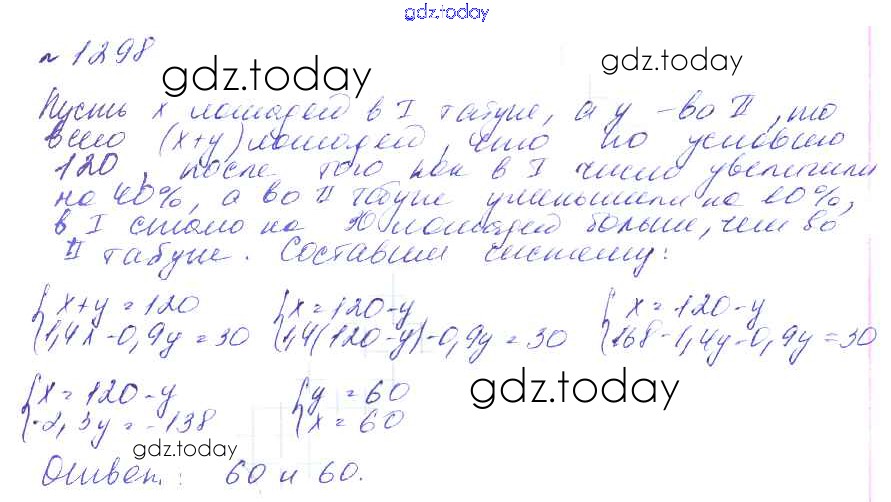 gdz.today
№ 1298
gdz.today
gdz.today
Пусть x лошадей в I табуне, а y - во II, то
всего (x+y) лошадей, что по условию
120, после того как в I число увеличили
на 40%, а во II табуне уменьшили на 10%,
в I стало на 30 лошадей больше, чем во
II табуне. Составим систему:
{x+y=120 {x=120-y {x=120-y
{1,4x-0,9y=30 {1,4(120-y)-0,9y=30 {168-1,4y-0,9y=30
{x=120-y {y=60
{-2,3y=-138 {x=60
gdz.today
gdz.today
Ответ: 60 и 60.